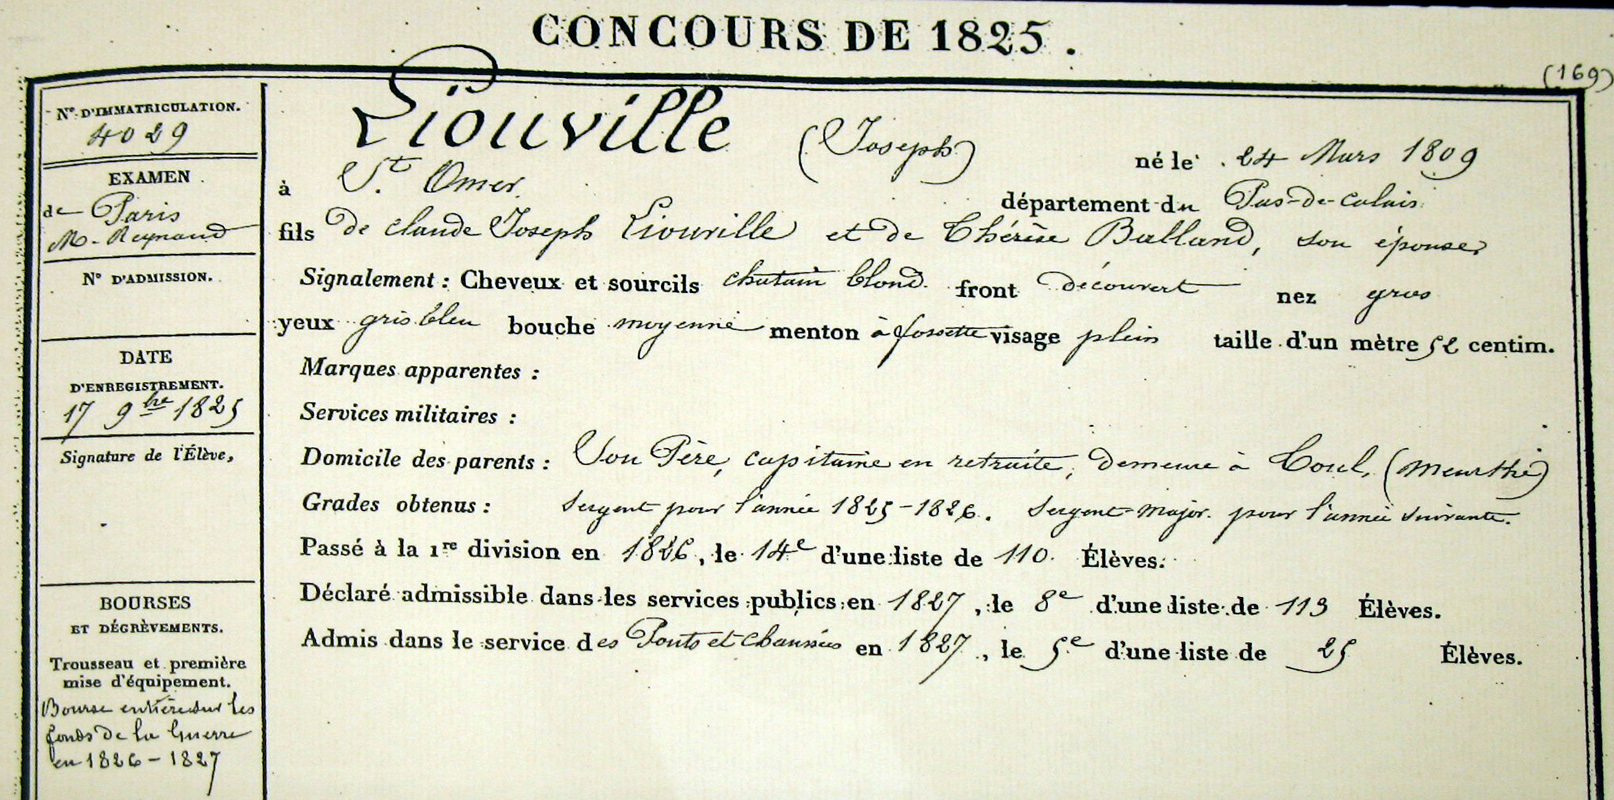 CONCOURS DE 1825.
(169)
N° D'IMMATRICULATION.
4029
EXAMEN
de Paris
M. Reynaud
N° D'ADMISSION.
DATE
D'ENREGISTREMENT.
17 9bre 1825
Signature de l'Élève,
BOURSES
ET DÉGRÈVEMENTS.
Trousseau et première
mise d'équipement.
Bourse entière sur les
fonds de la Guerre
en 1826-1827
Liouville (Joseph) né le 24 Mars 1809
à St. Omer département du Pas-de-calais
fils de claude Joseph Liouville et de Thérèse Balland, son épouse
Signalement : Cheveux et sourcils chatain blond front découvert nez gros
yeux gris bleu bouche moyenne menton à fossette visage plein taille d'un mètre 52 centim.
Marques apparentes :
Services militaires :
Domicile des parents : Son Père, capitaine en retraite, demeure à Toul, (Meurthe)
Grades obtenus : Sergent pour l'année 1825-1826. Sergent-Major pour l'année suivante.
Passé à la 1re division en 1826, le 14e d'une liste de 110 Élèves.
Déclaré admissible dans les services publics en 1827, le 8e d'une liste de 113 Élèves.
Admis dans le service des Ponts et chaussées en 1827, le 5e d'une liste de 25 Élèves.